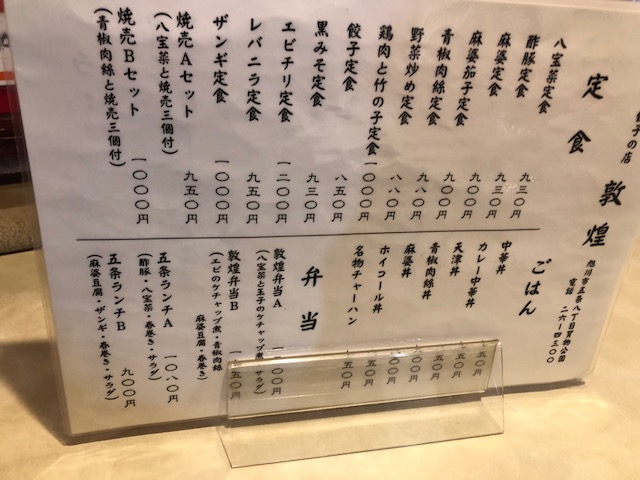 餃子の店
敦煌
旭川市五条八丁目買物公園
電話 二六ー四三〇〇
定食
八宝菜定食 九三〇円
酢豚定食 九三〇円
麻婆定食 九〇〇円
麻婆茄子定食 九〇〇円
青椒肉絲定食 九八〇円
野菜炒め定食 八八〇円
鶏肉と竹の子定食 一〇〇〇円
餃子定食 八五〇円
黒みそ定食 九三〇円
エビチリ定食 一二〇〇円
レバニラ定食 九五〇円
ザンギ定食 一〇〇〇円
焼売Aセット 九五〇円
(八宝菜と焼売三個付)
焼売Bセット 一〇〇〇円
(青椒肉絲と焼売三個付)
ごはん
中華丼
カレー中華丼
天津丼
青椒肉絲丼
麻婆丼
ホイコール丼
名物チャーハン
弁当
敦煌弁当A
(八宝菜と玉子のケチャップ煮・サラダ)
敦煌弁当B
(エビのケチャップ煮・青椒肉絲
麻婆豆腐・春巻き)
五条ランチA 一〇八〇円
(酢豚・八宝菜・春巻き・サラダ)
五条ランチB 九〇〇円
(麻婆豆腐・ザンギ・春巻き・サラダ)